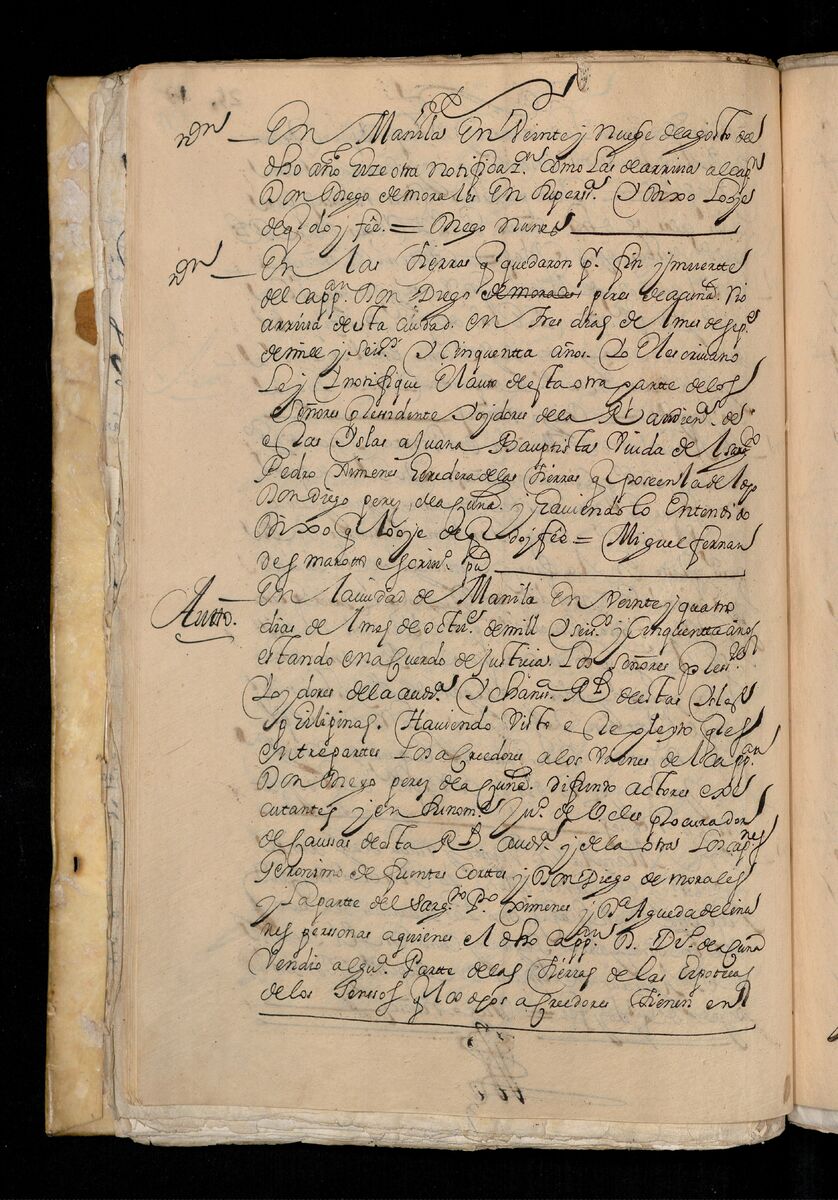 nōn — En Manila En Veinte y nuebe de agosto del
dho año hize otra notificazn. como las de arriva al capn
Don Diego de morales En su persna. Y Dixo lo oye
de q doy fee. = Diego Nunes
nōn — En las tierras q quedaron pr. fin y muertte
del cappan. Don Diego de morales peres de acuña. Rio
arriva de esta ciudad. en tres dias del mes de sepe.
de mill y seiss. Y cinquentta años. Yo El escrivano
Ley Y notifique El auto de esta otra partte de los
Señores presidente Y oydores de la Rl. audiena. de
estas Yslas a Juana Bauptista Viuda del sargto
Pedro Ximenes heredera de las tierras q poseen la del dho
Don Diego peres de la Cuña. y haviendolo Entendido
Dixo q lo oye de q doy fee = Miguel fernan
des marotto escrivo. puco
Autto. En la ciudad de Manila En Veinte y quatro
dias del mes de octue. de mill Y seiso. y cinquentta años
estando en acuerdo de justicia los señores preste.
Y oydores de la audia. Y chansa. Rl. de estas Yslas
philipinas. Haviendo Visto este pleyto q es
entre parttes los acreedores a los Vienes del cappan
Don Diego peres de la Cuña. difunto actores exe
cutantes y en su nome. Jun. de Veles procurador
de causas de esta Rl. audia. y de la otra los capnes
Geronimo de fuentes corttes y Don Diego de morales
y la partte del sargto Po. Ximenes y Da Agueda de lina
res personas a quienes el dho cappan D. Dio. de acuña
Vendio alguna. Partte de las tierras de las Ypotecas
de los Senssos q los dhos acreedores tienen en